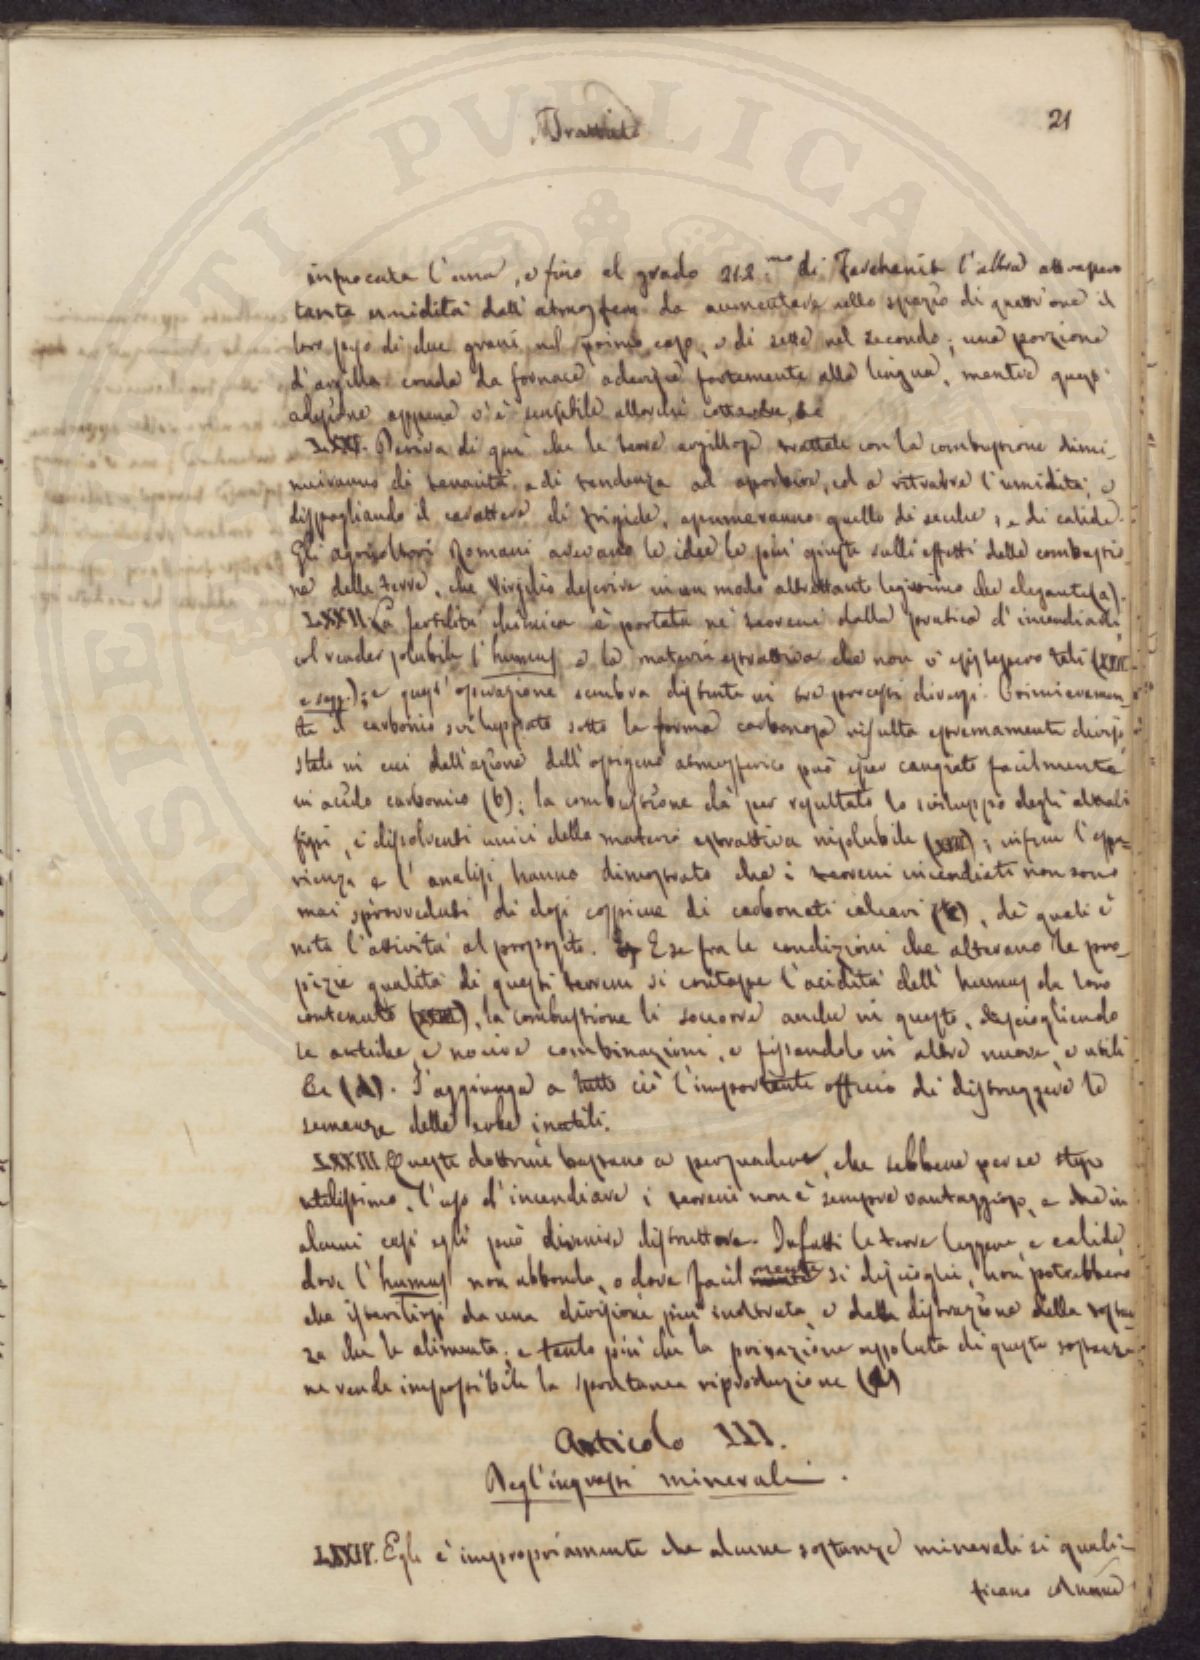 Trattato
21
infuocata l'una, e fino al grado 212.mo di Farehenit l'altra attrassero
tanta umidità dall'atmosfera da aumentare nello spazio di quattr'ore il
loro peso di due grani nel primo caso, e di sette nel secondo; una porzione
d'argilla cruda da fornace aderisce fortemente alla lingua, mentre quest'
adesione appena v'è sensibile allorchè
LXXI. Deriva di qui che le terre argillose trattate con la combustione dimi-
nuiranno di tenacità, e di tendenza ad assorbire, ed a ritrarre l'umidità; e
dispogliando il carattere di frigide, assumeranno quello di secche, e di calide.
Gli agricoltori Romani avevano le idee le più giuste sulli effetti della combustio-
ne delle terre, che Virgilio descrive in un modo altrettanto che elegante (a).
LXXII. La fertilità chimica è portata ne' terreni dalla pratica d'incendiarli,
col render solubile l'humus e la materia estrattiva che non v'esistessero tali (XXII
e segg.); e quest'operazione sembra distinta in tre processi diversi. Primieramen-
te il carbonio sviluppato sotto la forma carbonosa risulta estremamente diviso
stato in cui dall'azione dell'ossigeno atmosferico può esser cangiato facilmente
in acido carbonico (b); la combustione dà per resultato lo sviluppo degli alkali
fissi, e dissolventi unici della materia estrattiva insolubile (XXII); infine l'espe-
rienza e l'analisi hanno dimostrato che i terreni incendiati non sono
mai sprovveduti di dosi cospicue di carbonati calcari (c), de' quali è
nota l'attività al proposito. E se fra le condizioni che alterano le pro-
pizie qualità di questi terreni si contasse l'acidità dell'humus da loro
contenuto, la combustione li soccorre anche in questo, disciogliendo
le antiche, e nocive combinazioni, e fissandolo in altre nuove, e utili
(d). S'aggiunga a tutto ciò l'importante officio di distruggere le
semenze delle erbe inutili.
LXXIII. Queste dottrine bastano a persuadere, che sebbene per se stesso
utilissimo, l'uso d'incendiare i terreni non è sempre vantaggioso, e che in
alcuni casi egli può divenire distruttore. Infatti le terre leggere, e calide,
dove l'humus non abbonda, o dove facilmente si discioglie, non potrebbero
che isterilirsi da una divisione più inoltrata e dalla distrazione della sostan-
za che le alimenta; e tanto più che la privazione assoluta di questa sostanza
ne rende impossibile la spontanea riproduzione (a)
Articolo III.
Degl'ingrassi minerali.
LXXIV. Egli è impropriamente che alcune sostanze minerali si quali-
ficano col nome